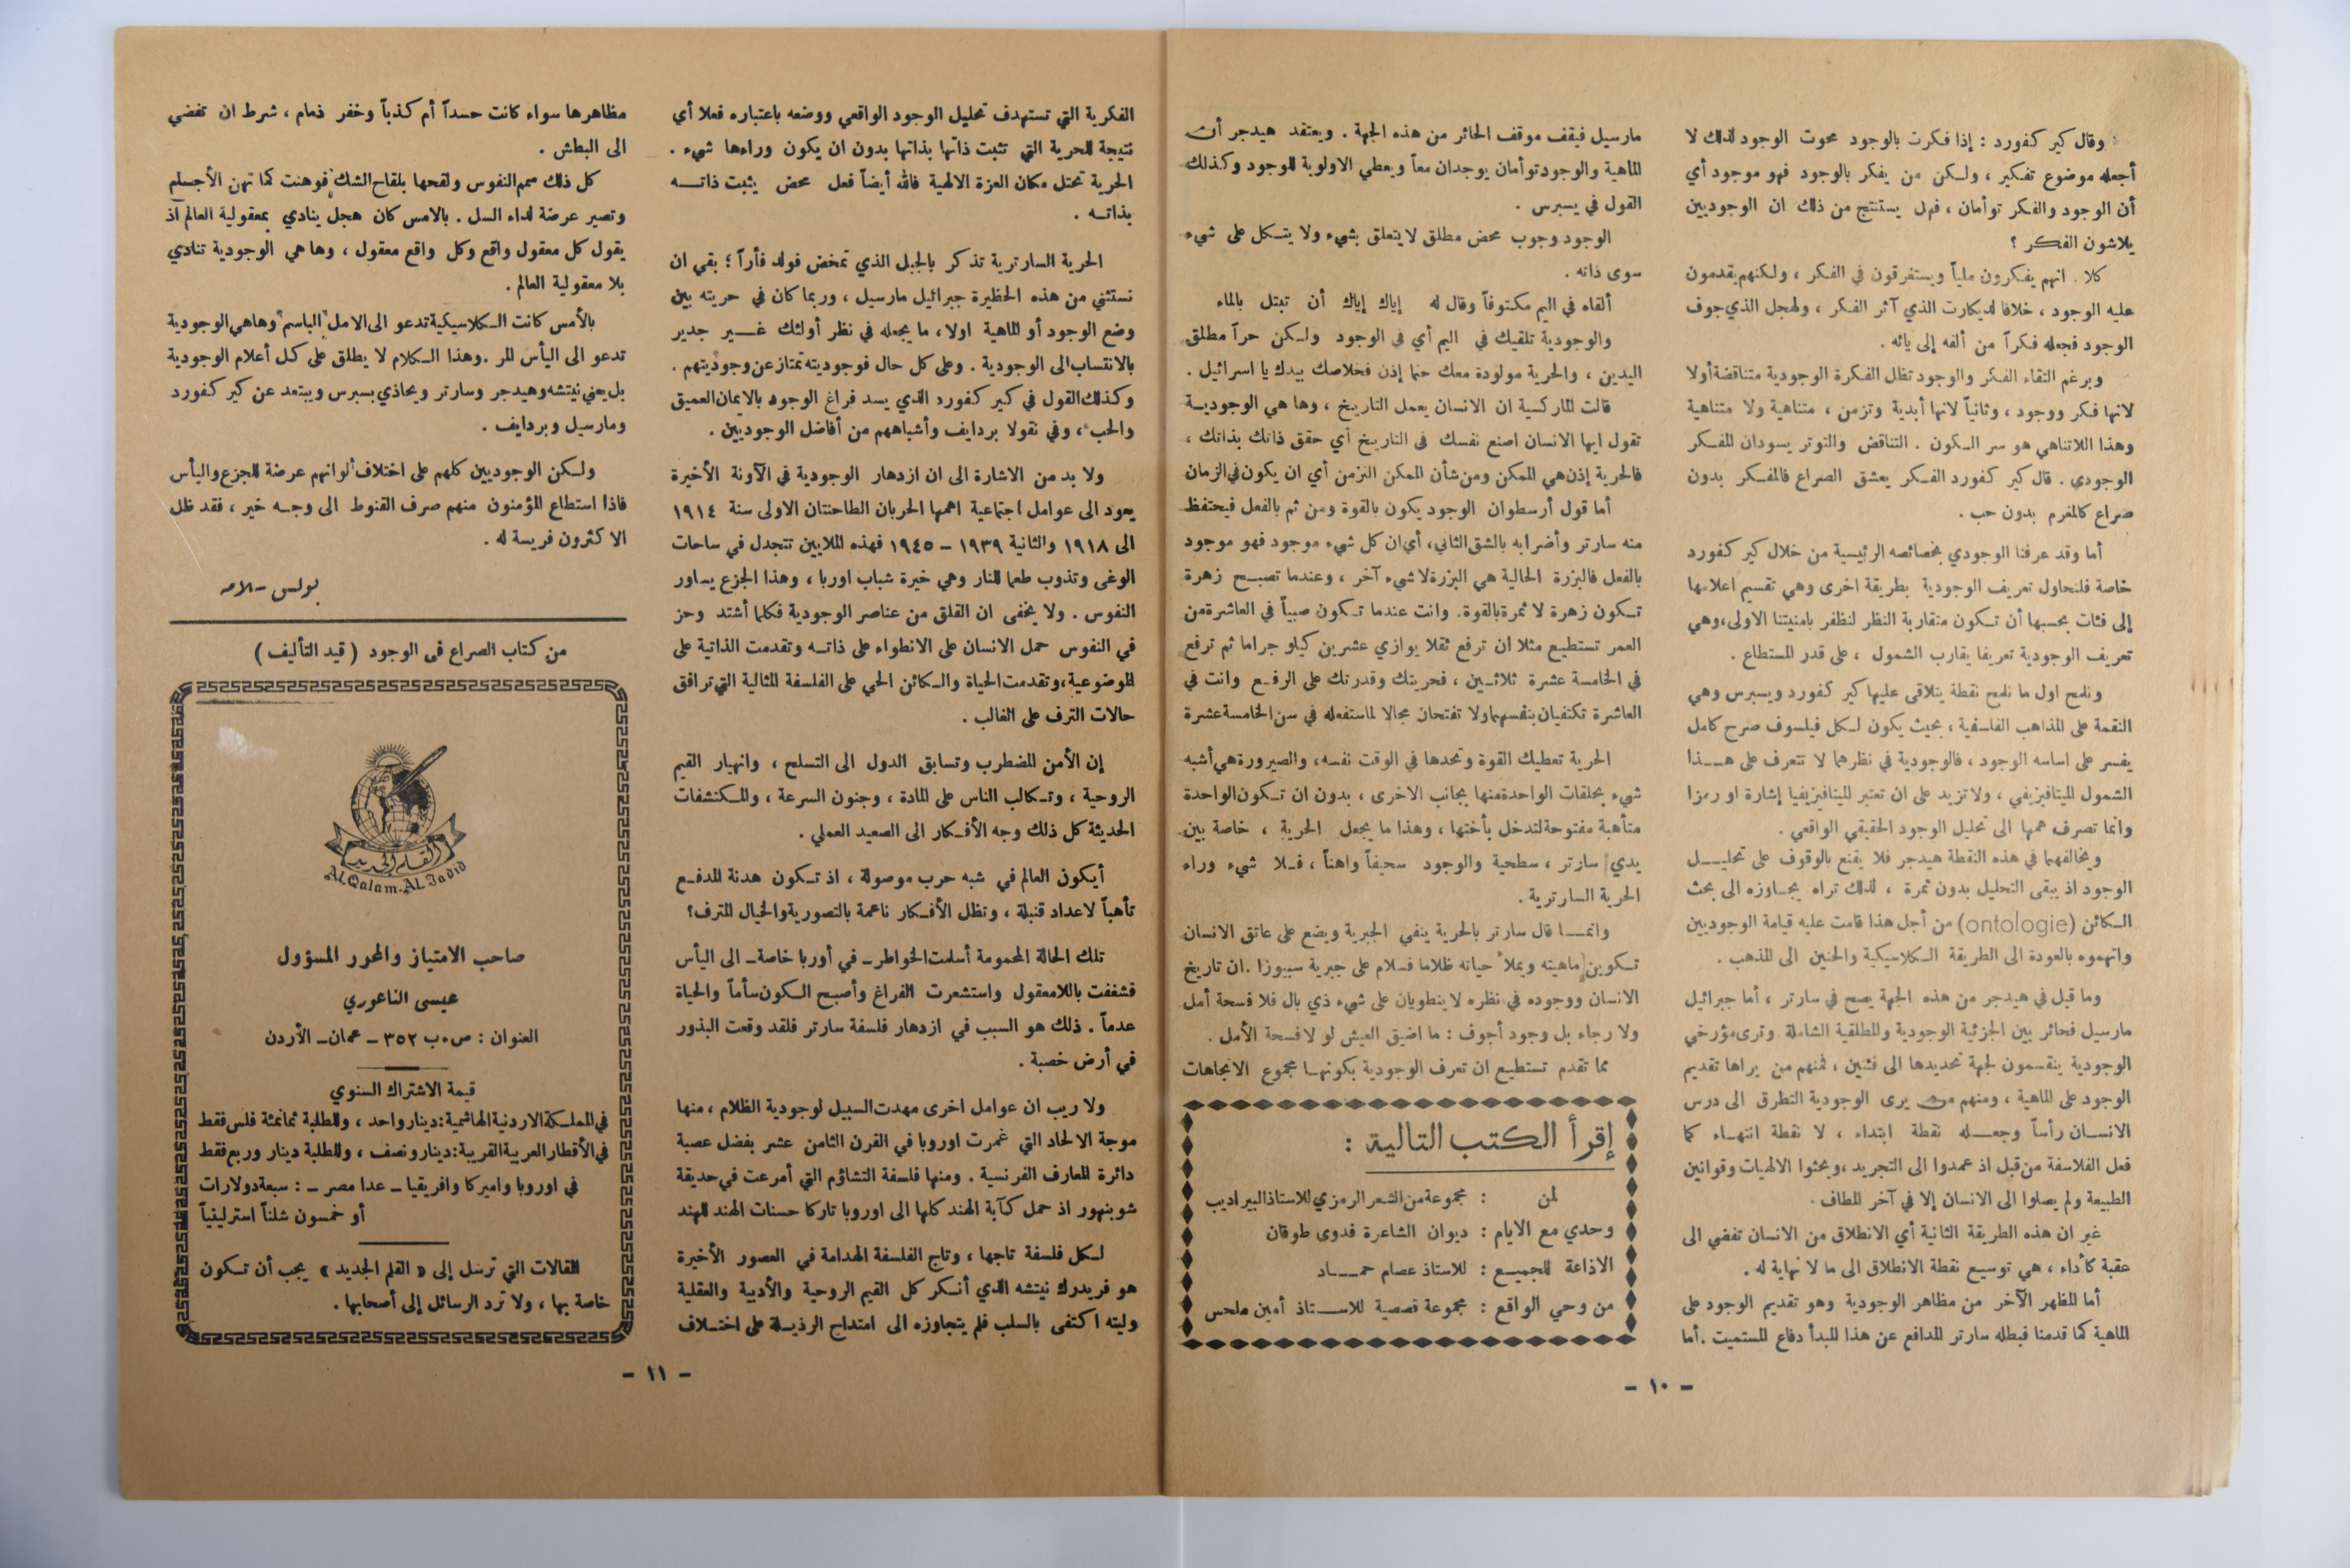 وقال كير كفورد : إذا فكرت بالوجود محوت الوجود لذلك لا
أجعله موضوع تفكير ، ولكن من يفكر بالوجود فهو موجود أي
أن الوجود والفكر توأمان ، فهل يستنتج من ذلك ان الوجوديين
يلاشون الفكر ؟
كلا . انهم يفكرون ملياً ويستغرقون في الفكر ، ولكنهم يقدمون
عليه الوجود ، خلافا لديكارت الذي آثر الفكر ، ولهجل الذي جوف
الوجود فجعله فكراً من ألفه إلى يائه .
وبرغم التقاء الفكر والوجود تظل الفكرة الوجودية متناقضة أولا
لانها فكر ووجود ، وثانياً لانها أبدية وتزمن ، متناهية ولا متناهية
وهذا اللاتناهي هو سر الكون . التناقض والتوتر يسودان المفكر
الوجودي . قال كير كفورد الفكر يعشق الصراع فالمفكر بدون
صراع كالمغرم بدون حب .
أما وقد عرفنا الوجودي بخصائصه الرئيسية من خلال كير كفورد
خاصة فلنحاول تعريف الوجودية بطريقة اخرى وهي تقسيم اعلامها
إلى فئات بحسبها أن تكون متقاربة النظر لنظفر بامنيتنا الاولى ، وهي
تعريف الوجودية تعريفا يقارب الشمول ، على قدر المستطاع .
ونلمح اول ما نلمح نقطة يتلاقى عليها كير كفورد ويسبرس وهي
النقمة على المذاهب الفلسفية ، بحيث يكون لكل فيلسوف صرح كامل
يفسر على اساسه الوجود ، فالوجودية في نظرهما لا تتعرف على هذا
الشمول الميتافيزيفي ، ولا تزيد على ان تعتبر الميتافيزيفيا إشارة او رمزا
وانما تصرف همها الى تحليل الوجود الحقيقي الواقعي .
ويخالفهما في هذه النقطة هيدجر فلا يقنع بالوقوف على تحليل
الوجود اذ يبقى التحليل بدون ثمرة ، لذلك تراه يجاوزه الى بحث
الكائن (ontologie) من أجل هذا قامت عليه قيامة الوجوديين
واتهموه بالعودة الى الطريقة الكلاسيكية والحنين الى المذهب .
وما قيل في هيدجر من هذه الجهة يصح في سارتر ، أما جبرائيل
مارسيل فحائر بين الجزئية الوجودية والمطلقية الشاملة وترى مؤرخي
الوجودية ينقسمون لجهة تحديدها الى فئتين ، فمنهم من يراها تقديم
الوجود على الماهية ، ومنهم من يرى الوجودية التطرق الى درس
الانسان رأساً وجعله نقطة ابتداء ، لا نقطة انتهاء كما
فعل الفلاسفة من قبل اذ عمدوا الى التجريد ، وبحثوا الالهيات وقوانين
الطبيعة ولم يصلوا الى الانسان إلا في آخر المطاف .
غير ان هذه الطريقة الثانية أي الانطلاق من الانسان تفضي الى
عقبة كأداء ، هي توسيع نقطة الانطلاق الى ما لا نهاية له .
أما المظهر الآخر من مظاهر الوجودية وهو تقديم الوجود على
الماهية كما قدمنا فبطله سارتر المدافع عن هذا المبدأ دفاع المستميت . أما
مارسيل فيقف موقف الحائر من هذه الجهة . ويعتقد هيدجر أن
الماهية والوجود توأمان يوجدان معاً ويعطي الاولوية للوجود وكذلك
القول في يسبرس .
الوجود وجوب محض مطلق لا يتعلق بشيء ولا يتكل على شيء
سوى ذاته .
ألقاه في اليم مكتوفاً وقال له إياك إياك أن تبتل بالماء
والوجودية تلقيك في اليم أي في الوجود ولكن حراً مطلق
اليدين ، والحرية مولودة معك حتما إذن فخلاصك بيدك يا اسرائيل .
قالت الماركسية ان الانسان يعمل التاريخ ، وها هي الوجودية
تقول ايها الانسان اصنع نفسك في التاريخ أي حقق ذاتك بذاتك ،
فالحرية إذن هي الممكن ومن شأن الممكن التزمن أي ان يكون في الزمان
أما قول أرسطوان الوجود يكون بالقوة ومن ثم بالفعل فيحتفظ
منه سارتر وأضرابه بالشق الثاني ، أي ان كل شيء موجود فهو موجود
بالفعل فالبزرة الحالية هي البزرة لا شيء آخر ، وعندما تصبح زهرة
تكون زهرة لا ثمرة بالقوة . وانت عندما تكون صبياً في العاشرة من
العمر تستطيع مثلا ان ترفع ثقلا يوازي عشرين كيلو جراما ثم ترفع
في الخامسة عشرة ثلاثين ، فحريتك وقدرتك على الرفع وانت في
العاشرة تكتفيان بنفسهما ولا تفتحان مجالا لما ستفعله في سن الخامسة عشرة
الحرية تعطيك القوة وتحدها في الوقت نفسه ، والصيرورة هي أشبه
شيء بحلقات الواحدة منها بجانب الاخرى ، بدون ان تكون الواحدة
متأهبة مفتوحة لتدخل بأختها ، وهذا ما يجعل الحرية ، خاصة بين
يدي سارتر ، سطحية والوجود سحيفاً واهناً ، فلا شيء وراء
الحرية السارترية .
وانما قال سارتر بالحرية ينفي الجبرية ويضع على عاتق الانسان
تكوين ماهيته ويملأ حياته ظلاما فسلام على جبرية سبيوزا . ان تاريخ
الانسان ووجوده في نظره لا ينطويان على شيء ذي بال فلا فسحة أمل
ولا رجاء بل وجود أجوف : ما اضيق العيش لو لا فسحة الأمل .
مما تقدم تستطيع ان تعرف الوجودية بكونها مجموع الاتجاهات
إقرأ الكتب التالية :
لمن : مجموعة من الشعر الرمزي للاستاذ البير اديب
وحدي مع الايام : ديوان الشاعرة فدوى طوقان
الاذاعة للجميع : للاستاذ عصام حماد
من وحي الواقع : مجموعة قصصية للاستاذ أمين ملحس
- ١٠ -
الفكرية التي تستهدف تحليل الوجود الواقعي ووضعه باعتباره فعلا أي
نتيجة للحرية التي تثبت ذاتها بذاتها بدون ان يكون وراءها شيء .
الحرية تحتل مكان العزة الالهية فالله أيضاً فعل محض يثبت ذاته
بذاته .
الحرية السارترية تذكر بالجبل الذي تمخض فولد فأراً ؛ بقي ان
نستثني من هذه الحظيرة جبرائيل مارسيل ، وربما كان في حريته بين
وضع الوجود أو الماهية اولا ، ما يجعله في نظر أولئك غير جدير
بالانتساب الى الوجودية . وعلى كل حال فوجوديته تمتاز عن وجوديتهم .
وكذلك القول في كير كفورد الذي يسد فراغ الوجود بالايمان العميق
والحب ، وفي نقولا بردايف وأشباههم من أفاضل الوجوديين .
ولا بد من الاشارة الى ان ازدهار الوجودية في الآونة الأخيرة
يعود الى عوامل اجتماعية اهمها الحربان الطاحنتان الاولى سنة ١٩١٤
الى ١٩١٨ والثانية ١٩٣٩ - ١٩٤٥ فهذه الملايين تتجدل في ساحات
الوغى وتذوب طعما للنار وهي خيرة شباب اوربا ، وهذا الجزع يساور
النفوس . ولا يخفى ان القلق من عناصر الوجودية فكلما أشتد وحز
في النفوس حمل الانسان على الانطواء على ذاته وتقدمت الذاتية على
الموضوعية ، وتقدمت الحياة والكائن الحي على الفلسفة المثالية التي ترافق
حالات الترف على الغالب .
إن الأمن المضطرب وتسابق الدول الى التسلح ، وانهيار القيم
الروحية ، وتكالب الناس على المادة ، وجنون السرعة ، والمكتشفات
الحديثة كل ذلك وجه الأفكار الى الصعيد العملي .
أيكون العالم في شبه حرب موصولة ، اذ تكون هدنة المدفع
تأهباً لاعداد قنبلة ، وتظل الأفكار ناعمة بالتصورية والخيال المترف؟
تلك الحالة المحمومة أسلمت الخواطر - في أوربا خاصة - الى اليأس
فشغفت باللامعقول واستشعرت الفراغ وأصبح الكون سأماً والحياة
عدماً . ذلك هو السبب في ازدهار فلسفة سارتر فلقد وقعت البذور
في أرض خصبة .
ولا ريب ان عوامل اخرى مهدت السبيل لوجودية الظلام ، منها
موجة الالحاد التي غمرت اوروبا في القرن الثامن عشر بفضل عصبة
دائرة المعارف الفرنسية . ومنها فلسفة التشاؤم التي أمرعت في حديقة
شوبنهور اذ حمل كآبة الهند كلها الى اوروبا تاركا حسنات الهند للهند
لكل فلسفة تاجها ، وتاج الفلسفة الهدامة في العصور الأخيرة
هو فريدرك نيتشه الذي أنكر كل القيم الروحية والأدبية والعقلية
وليته اكتفى بالسلب فلم يتجاوزه الى امتداح الرذيلة على اختلاف
مظاهرها سواء كانت حسداً أم كذباً وخفر ذمام ، شرط ان تفضي
الى البطش .
كل ذلك سمم النفوس ولقحها بلقاح الشك فوهنت كما تهن الأجسام
وتصير عرضة لداء السل . بالامس كان هجل ينادي بمعقولية العالم اذ
يقول كل معقول واقع وكل واقع معقول ، وها هي الوجودية تنادي
بلا معقولية العالم .
بالأمس كانت الكلاسيكية تدعو الى الامل الباسم وهاهي الوجودية
تدعو الى اليأس المر . وهذا الكلام لا يطلق على كل أعلام الوجودية
بل يعني نيتشه وهيدجر وسارتر ويحاذي يسبرس ويبتعد عن كير كفورد
ومارسيل وبردايف .
ولكن الوجوديين كلهم على اختلاف ألوانهم عرضة للجزع واليأس
فاذا استطاع المؤمنون منهم صرف القنوط الى وجه خير ، فقد ظل
الاكثرون فريسة له .
بولس سلامه
من كتاب الصراع في الوجود ( قيد التأليف )
القلم الجديد
AL Qalam-AL Jadid
صاحب الامتياز والمحرر المسؤول
عيسى الناعوري
العنوان : ص.ب ٣٥٢ - عمان - الأردن
قيمة الاشتراك السنوي
في المملكة الاردنية الهاشمية : دينار واحد ، وللطلبة ثمانمئة فلس فقط
في الأقطار العربية القريبة : دينار ونصف ، وللطلبة دينار وربع فقط
في اوروبا واميركا وافريقيا - عدا مصر - : سبعة دولارات
أو خمسون شلناً استرلينياً
المقالات التي ترسل إلى « القلم الجديد » يجب أن تكون
خاصة بها ، ولا ترد الرسائل إلى أصحابها .
- ١١ -